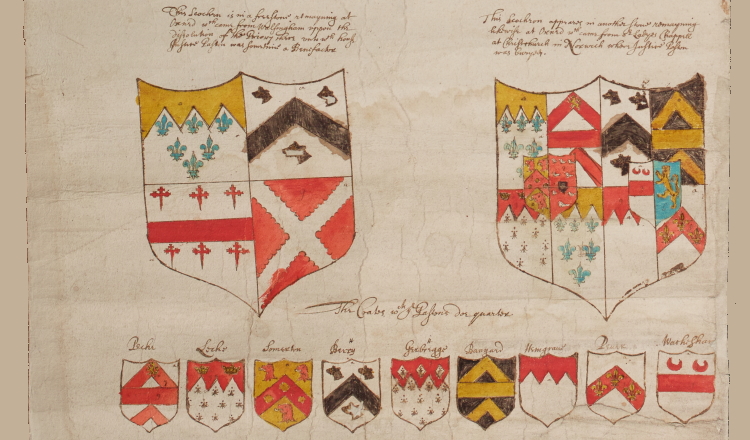 This Scochin is in a free stone remayning at
Oxnd wch came from Walsingham upon the
dissolution of the Priory there unto wch house
Justice Paston was sometime a Benefactor
This scochen appeares in another stone remayning
likewise at Oxnd wch came from Chappell
at Christchurch in Norwich where Justice Paston
was buryed.
The Coates wch ye Pastons doe quarter
Peche
Leche
Somerton
Berry
Gerbrigge
Banyard
Hengrave